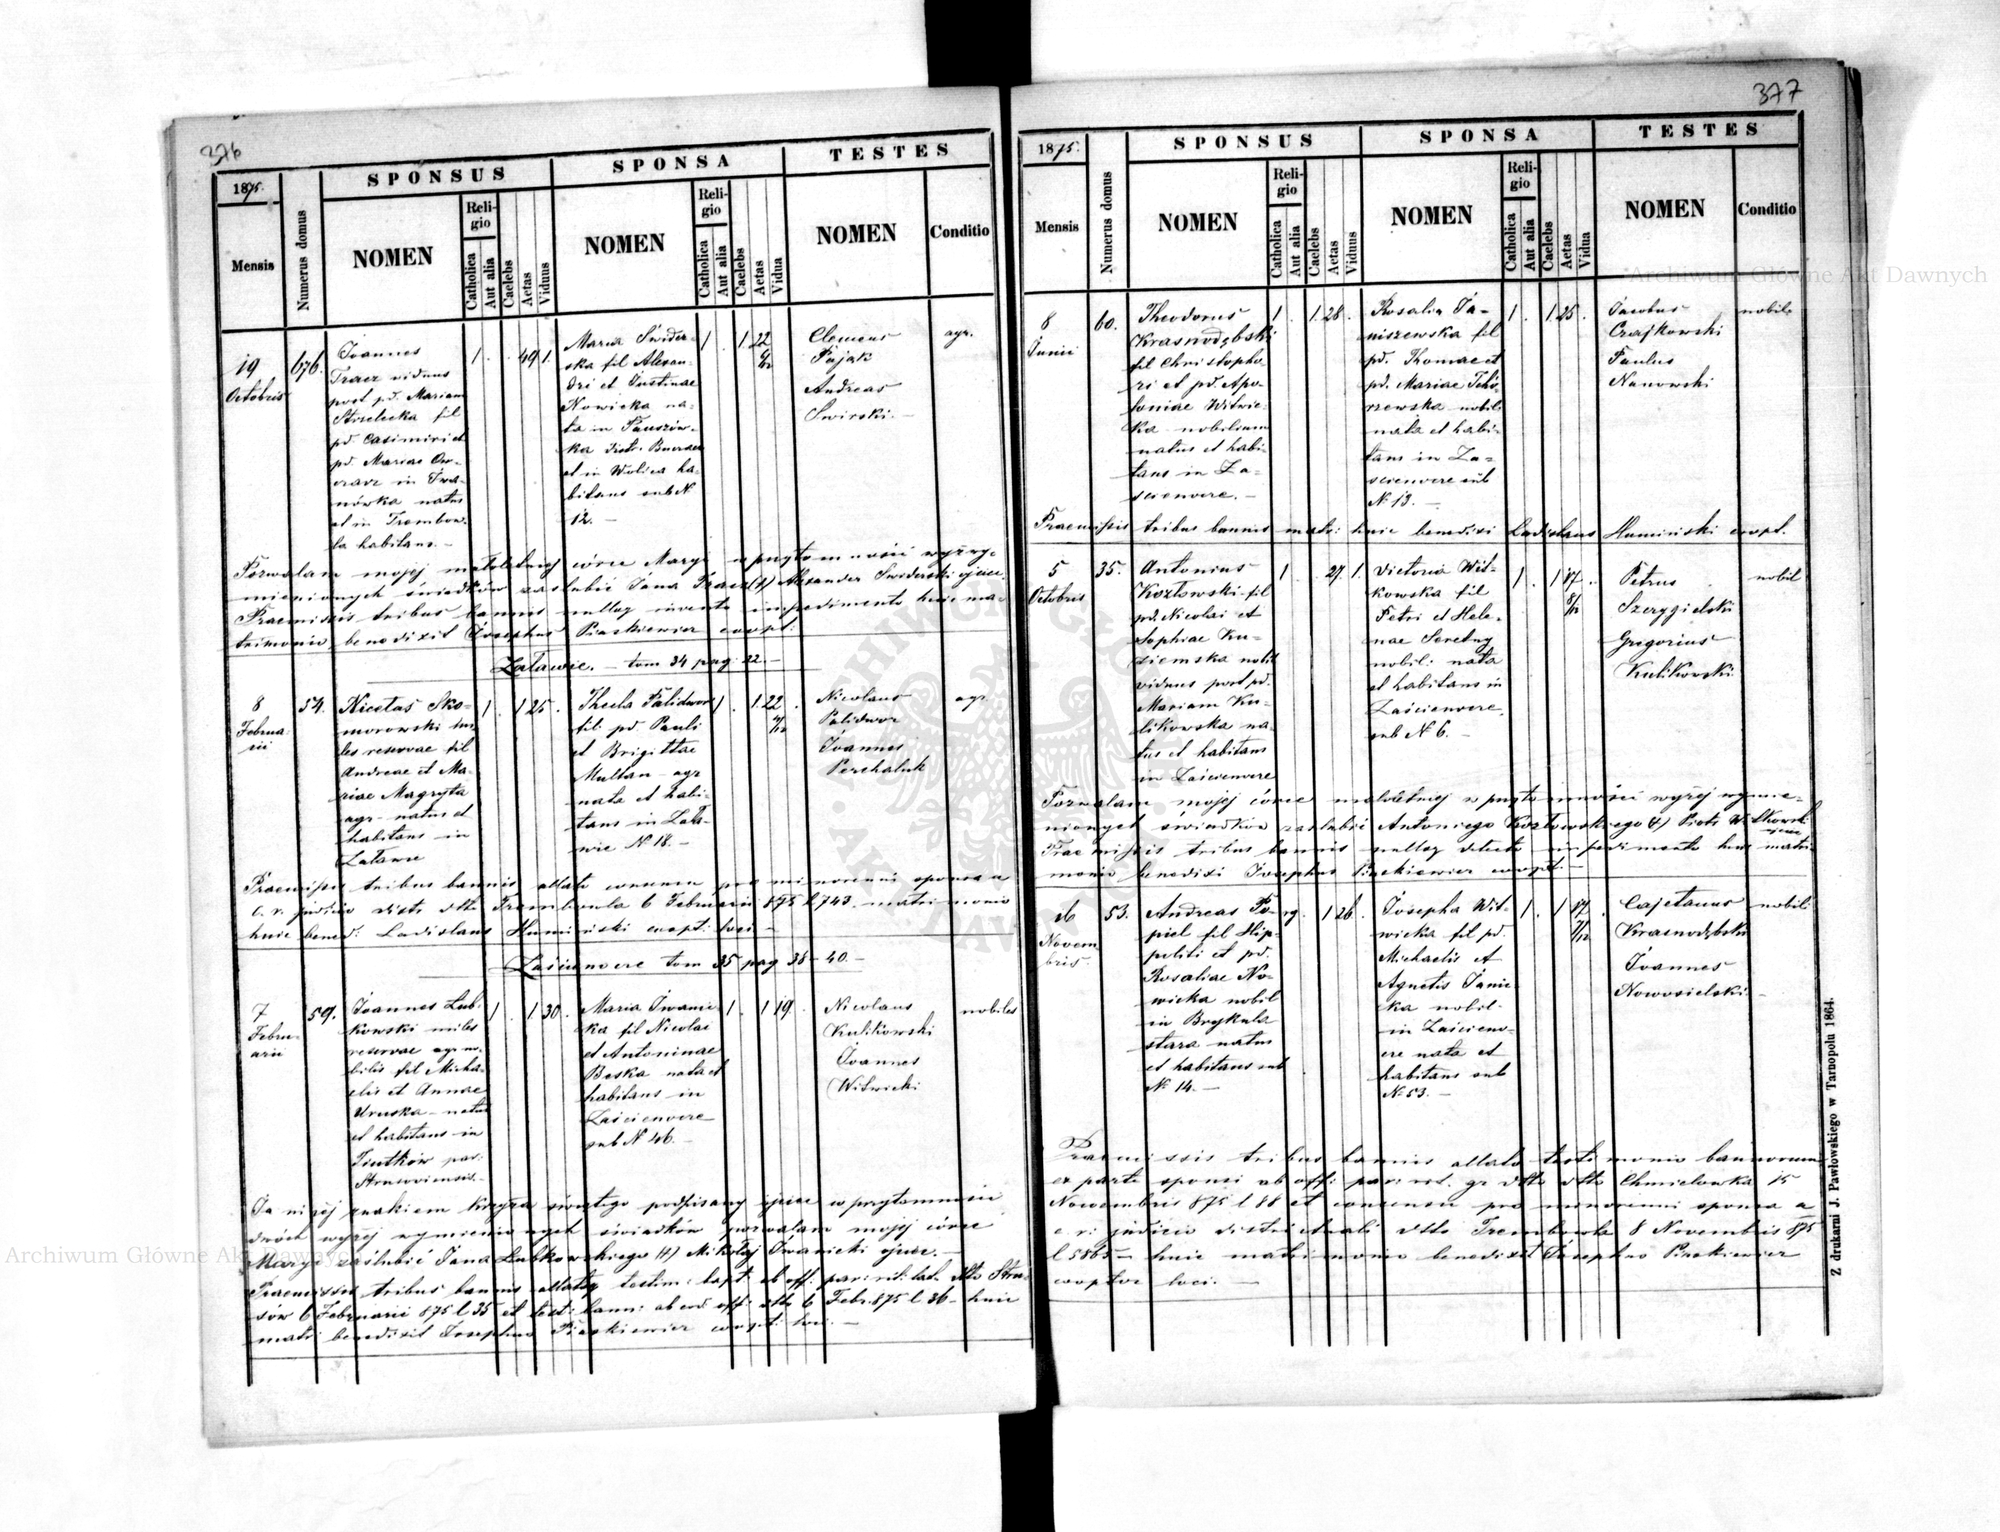 376
1875.
SPONSUS
SPONSA
TESTES
Mensis
Numerus domus
NOMEN
Religio
Catholica
Aut alia
Caelebs
Aetas
Viduus
NOMEN
Religio
Catholica
Aut alia
Caelebs
Aetas
Vidua
NOMEN
Conditio
19
Octobris
676.
Joannes
Tracz viduus
post pd. Mariam
Strzelecka fil
pd. Casimiri et
pd. Mariae
in Iwa-
nówka natus
et in Trembow-
la habitans. -
1 . . 49 1.
Maria Świder-
ska fil Alexan-
dri et Justinae
Nowicka na-
ta in Pauszów-
ka
et in Wolica ha-
bitans sub N
12. -
1 . 1. 22
Clemens
Pająk
Andreas
Swirski. -
agr.
Pozwalam mojej małoletniej córce Maryi w przytomności wyżwy-
mienionych świadków zaślubić Jana Tracz (+) Alexander Swiderski ojciec.
Praemissis tribus bannis nulloq invento impedimento huic ma-
trimonio benedixit Josephus Piaskiewicz coopt:
Załawie. - tom 34 pag. 22. -
8
Februa-
rii
54.
Nicetas Sko-
morowski mi-
les reservae fil
Andreae et Ma-
riae Magryta
agr. natus et
habitans in
Załawie
1 . 1 25 .
Thecla Palidwor
fil. pd. Pauli
et Brigittae
Multan - agr
nata et habi-
tans in Zała-
wie N 18. -
1 . 1. 22
Nicolaus
Palidwor
Joannes
Perchaluk
agr.
Praemissis tribus bannis allato consensu pro minorenni sponsa a
c. r. judicio distr. dtto Trembowla 6 Februarii 875 l 743. matrimonio
huic bened: Ladislaus Humiński coopt: loci -
Zaścienocze tom 35 pag 38 - 40. -
7
Febru-
arii
59.
Joannes Lub-
kowski miles
reservae agr no-
bilis fil Micha-
elis et Annae
Uruska - natus
et habitans in
Tiutków par:
Strusoviensis. -
1 . 1. 30 .
Maria Iwanic-
ka fil Nicolai
et Antoninae
Beska nata et
habitans in
Zaścienocze
sub N 46. -
1 . 1 19 .
Nicolaus
Kulikowski
Joannes
Witwicki
nobiles
Ja niżej znakiem krzyża świętego podpisany ojciec w przytomności
dwóch wyżej wymienionych świadków pozwalam mojej córce
Maryi zaślubić Jana Lubkowskiego (+) Mikołaj Iwanicki ojciec. -
Praemissis tribus bannis allatoq testim: bapt. ab off. par: rit. lat. dtto Stru-
sów 6 Februarii 875 l 35 et test: bann: ab eod off: dtto 6 Febr. 875 l 36 - huic
matri benedixit Josephus Piaskiewicz coopt: loci. -
377
1875.
SPONSUS
SPONSA
TESTES
Mensis
Numerus domus
NOMEN
Religio
Catholica
Aut alia
Caelebs
Aetas
Viduus
NOMEN
Religio
Catholica
Aut alia
Caelebs
Aetas
Vidua
NOMEN
Conditio
8
Junii
60.
Theodorus
Krasnodębski
fil Christopho-
ri et pd. Apo-
loniae Witwic-
ka nobilium
natus et habi-
tans in Za-
scienocze. -
1 . 1. 28 .
Rosalia Ja-
niszewska fil
pd. Thomae et
pd. Mariae Tchó-
rzewska nobil:
nata et habi-
tans in Za-
scienocze sub
N 13. -
1 . 1. 25 .
Jacobus
Czajkowski
Paulus
Nanowski
nobil.
Praemissis tribus bannis matri: huic benedixi Ladislaus Humiński coopt.
5
Octobris
35.
Antonius
Kozłowski fil
pd. Nicolai et
Sophiae Ku-
ziemska nobil
viduus post pd.
Mariam Ku-
likowska na-
tus et habitans
in Zaścienocze
1 . . 27. 1.
Victoria Wit-
kowska fil
Petri et Hele-
nae Seretny
nobil: nata
et habitans in
Zaścienocze
sub N 6. -
1 . 1 17 8/12 .
Petrus
Szeregielski
Gregorius
Kulikowski
nobil
Pozwalam mojej córce małoletniej w przytomności wyżej wymie-
nionych świadków zaślubić Antoniego Kozłowskiego (+) Piotr Witkowski
ojciec
Praemissis tribus bannis nulloq detecto impedimento huic matri-
monio benedixi Josephus Piaskiewicz coopt. -
16
Novem-
bris.
53.
Andreas Po-
piel fil Hip-
politi et pd.
Rosaliae No-
wicka nobil
in Brykula
stara natus
et habitans sub
N 14. -
1 26 .
Josepha Wit-
wicka fil pd.
Michaelis et
Agnetis Janic-
ka nobil.
in Zaścieno-
cze nata et
habitans sub
N 53. -
1 . 1 17 7/12 .
Cajetanus
Krasnodębski
Joannes
Nowosielski. -
nobil:
Praemissis tribus bannis allato testimonio bannorum
ex parte sponsi ab off: par: rit. gr. dtto Chmielowka 15
Novembris 875 l 88 et consensu pro minorenni sponsa a
c. r. judicio districtuali dtto Trembowla 8 Novembris 875
l 5865 - huic matrimonio benedixit Josephus Piaskiewicz
cooptor loci. -
Z drukarni J. Pawłowskiego w Tarnopolu 1864.
Archiwum Główne Akt Dawnych
Archiwum Główne Akt Dawnych